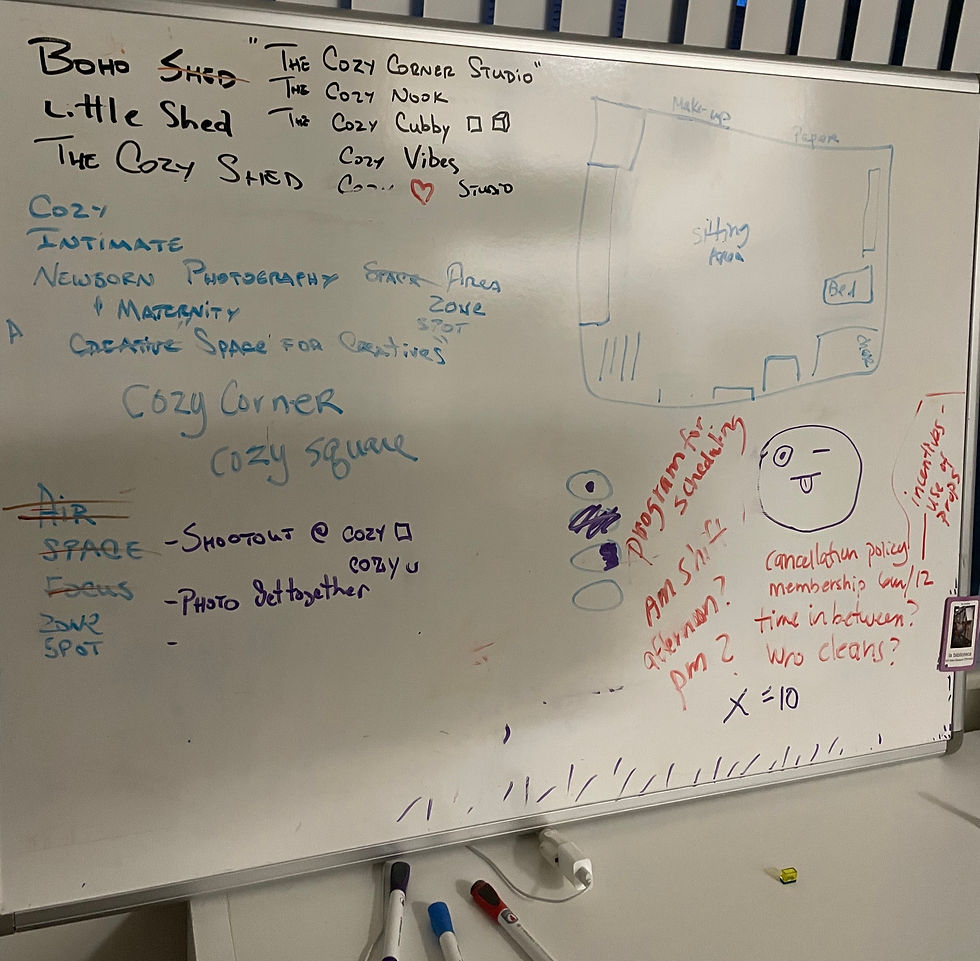 BOHO SHED
Little Shed
THE COZY SHED
"THE COZY CORNER STUDIO"
THE COZY NOOK
THE COZY Cubby
COZY Vibes
STUDIO
COZY
INTIMATE
NEWBORN PHOTOGRAPHY SPACE AREA
& MATERNITY ZONE
SPOT
A CREATIVE "SPACE" FOR Creatives
Cozy Corner
cozy square
AIR
SPACE
FOCUS
ZONE
SPOT
- SHOOTOUT @ COZY
COZY
- PHOTO Get together
-
Make-up
Paper
Sitting
AREA
Bed
program for
scheduling
AM shift
afternoon?
pm ?
incentives -
use of
props
cancellation policy
membership 6m/12
time in between?
who cleans?
X = 10
la biblioteca